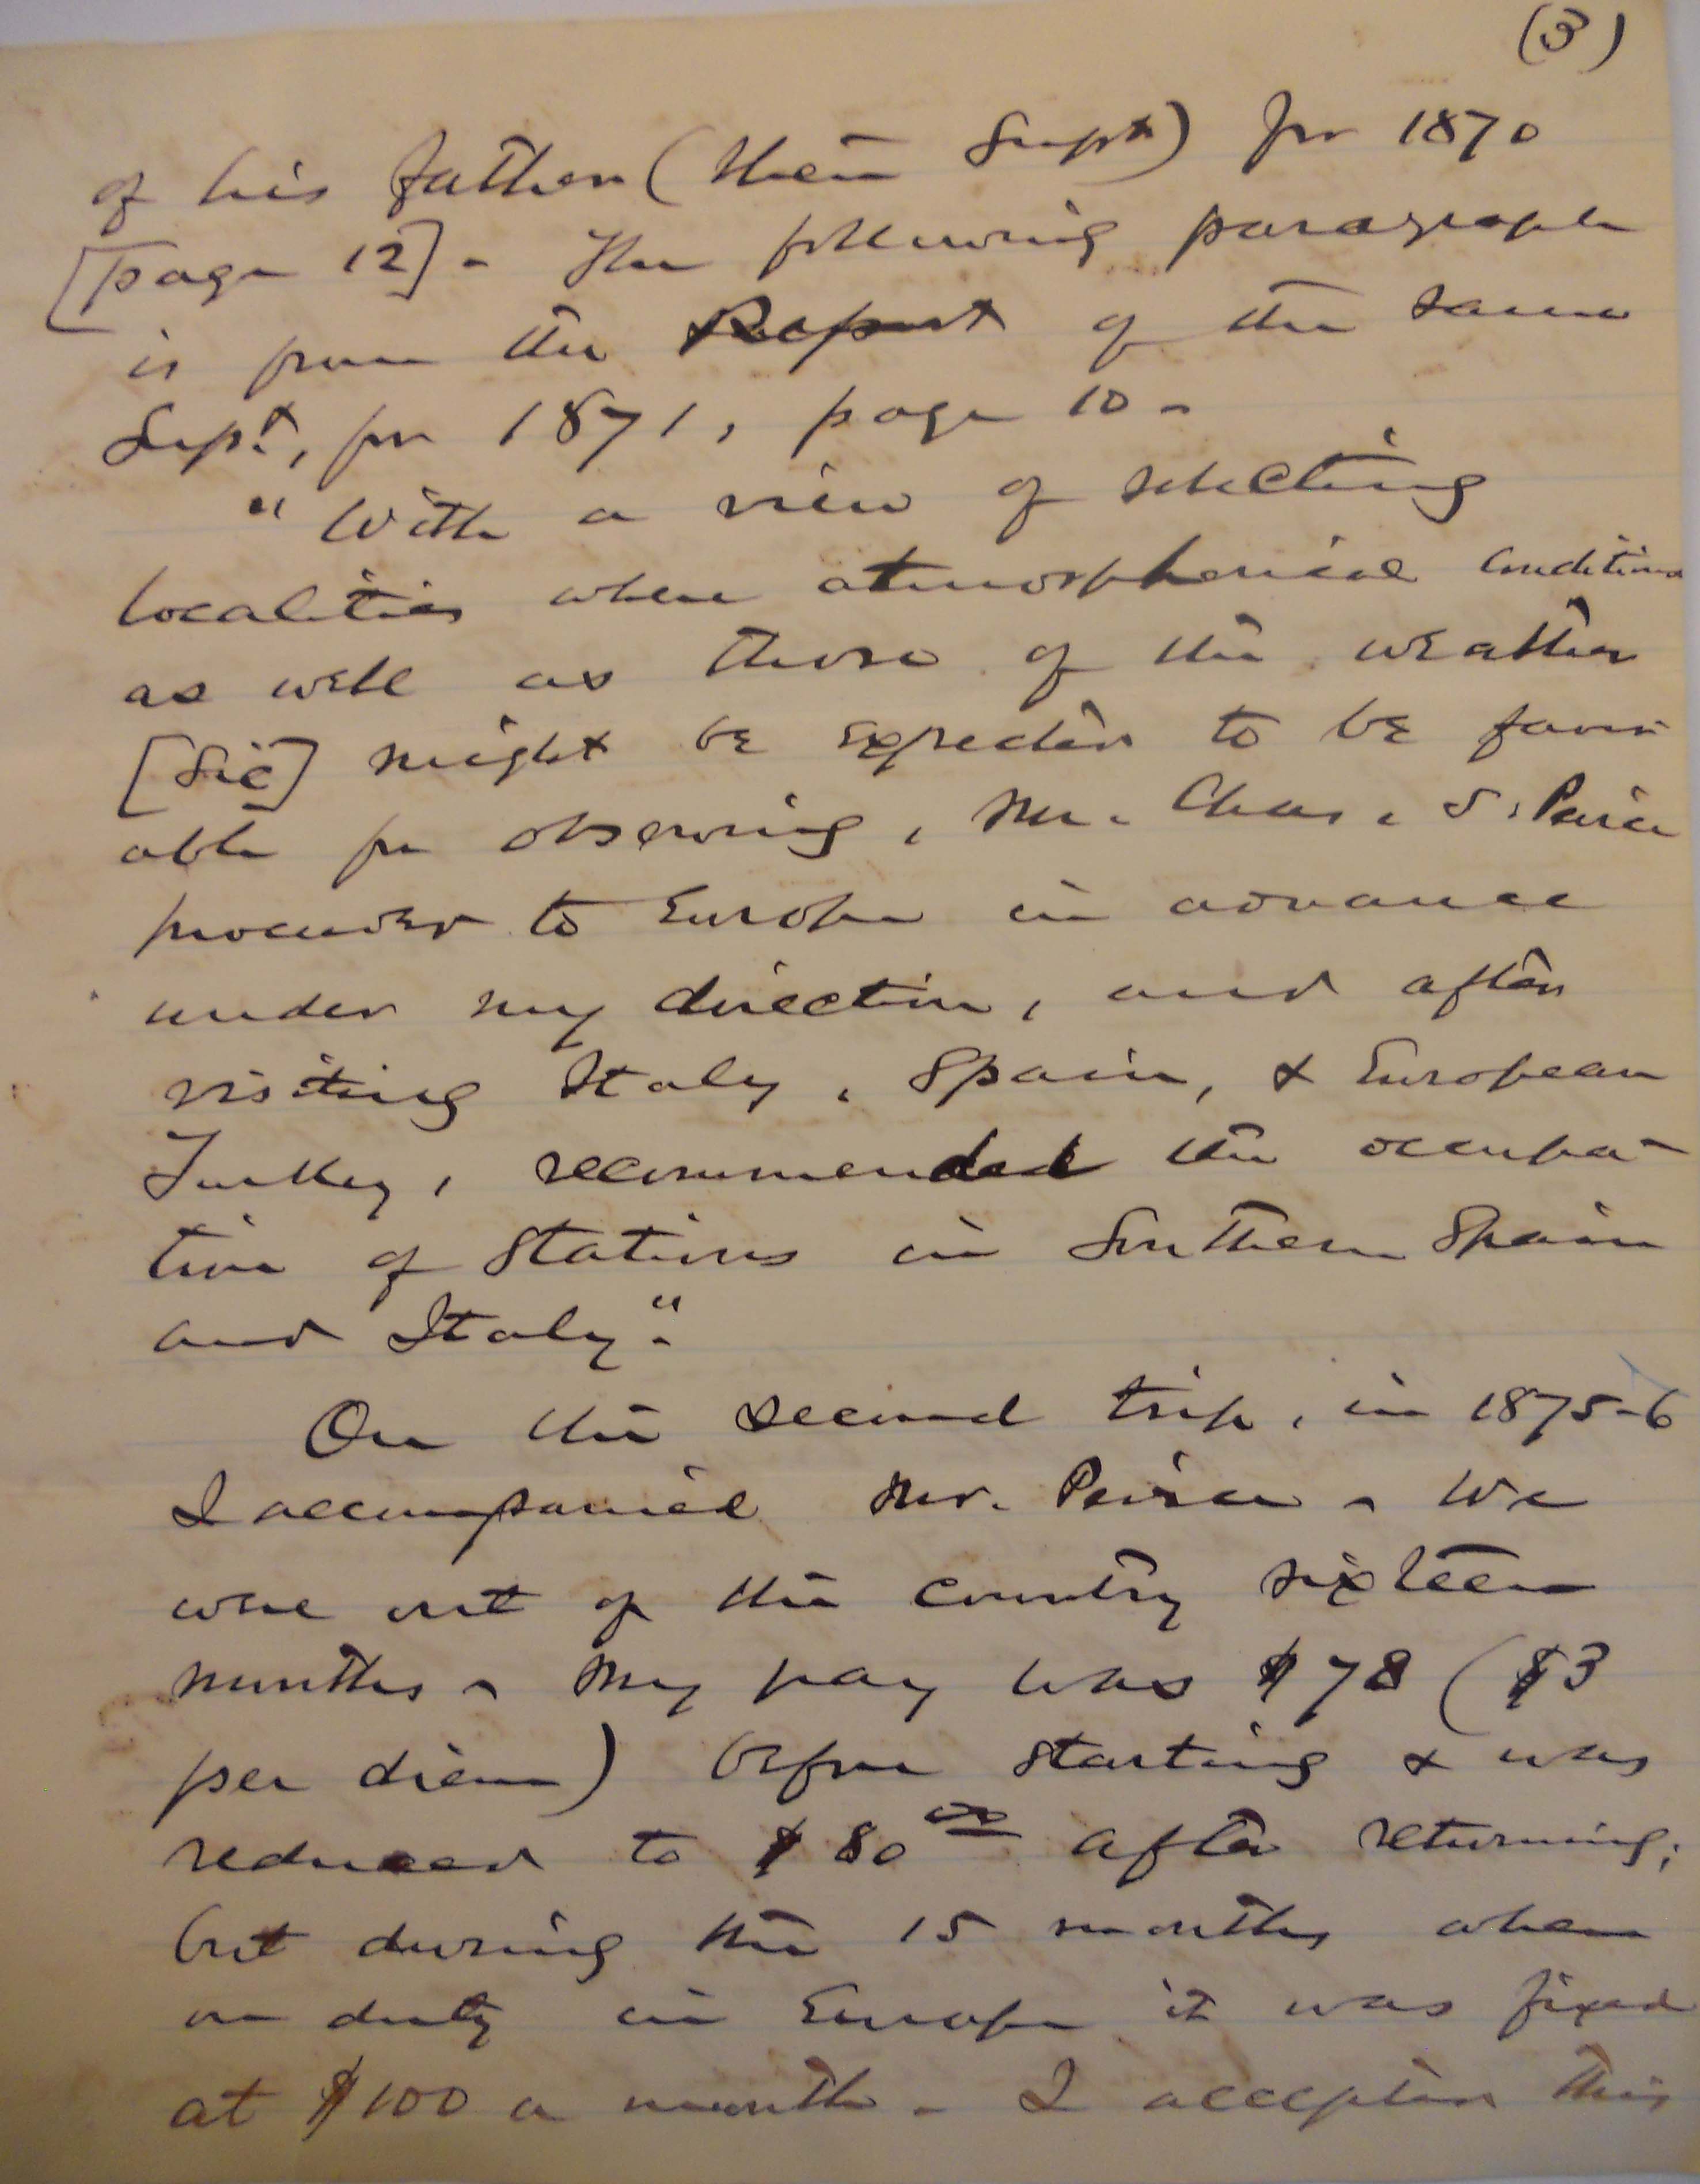 (3)
of his father (then Supt) for 1870
[page 12]. The following paragraph
is from the Report of the same
Supt., for 1871, page 10 -
"With a view of selecting
localities where atmospherical conditions
as well as those of the weather
[Sic] might be expected to be favor-
able for observing, Mr. Chas. S. Peirce
proceeded to Europe in advance
under my direction, and after
visiting Italy, Spain, & European
Turkey, recommended the occupa-
tion of Stations in Southern Spain
and Italy."
On the second trip, in 1875-6
I accompanied Mr. Peirce - We
were out of the country sixteen
months - My pay was $78 ($3
per diem) before starting & was
reduced to $80 00 after returning;
but during the 15 months when
on duty in Europe it was fixed
at $100 a month - I accepted this